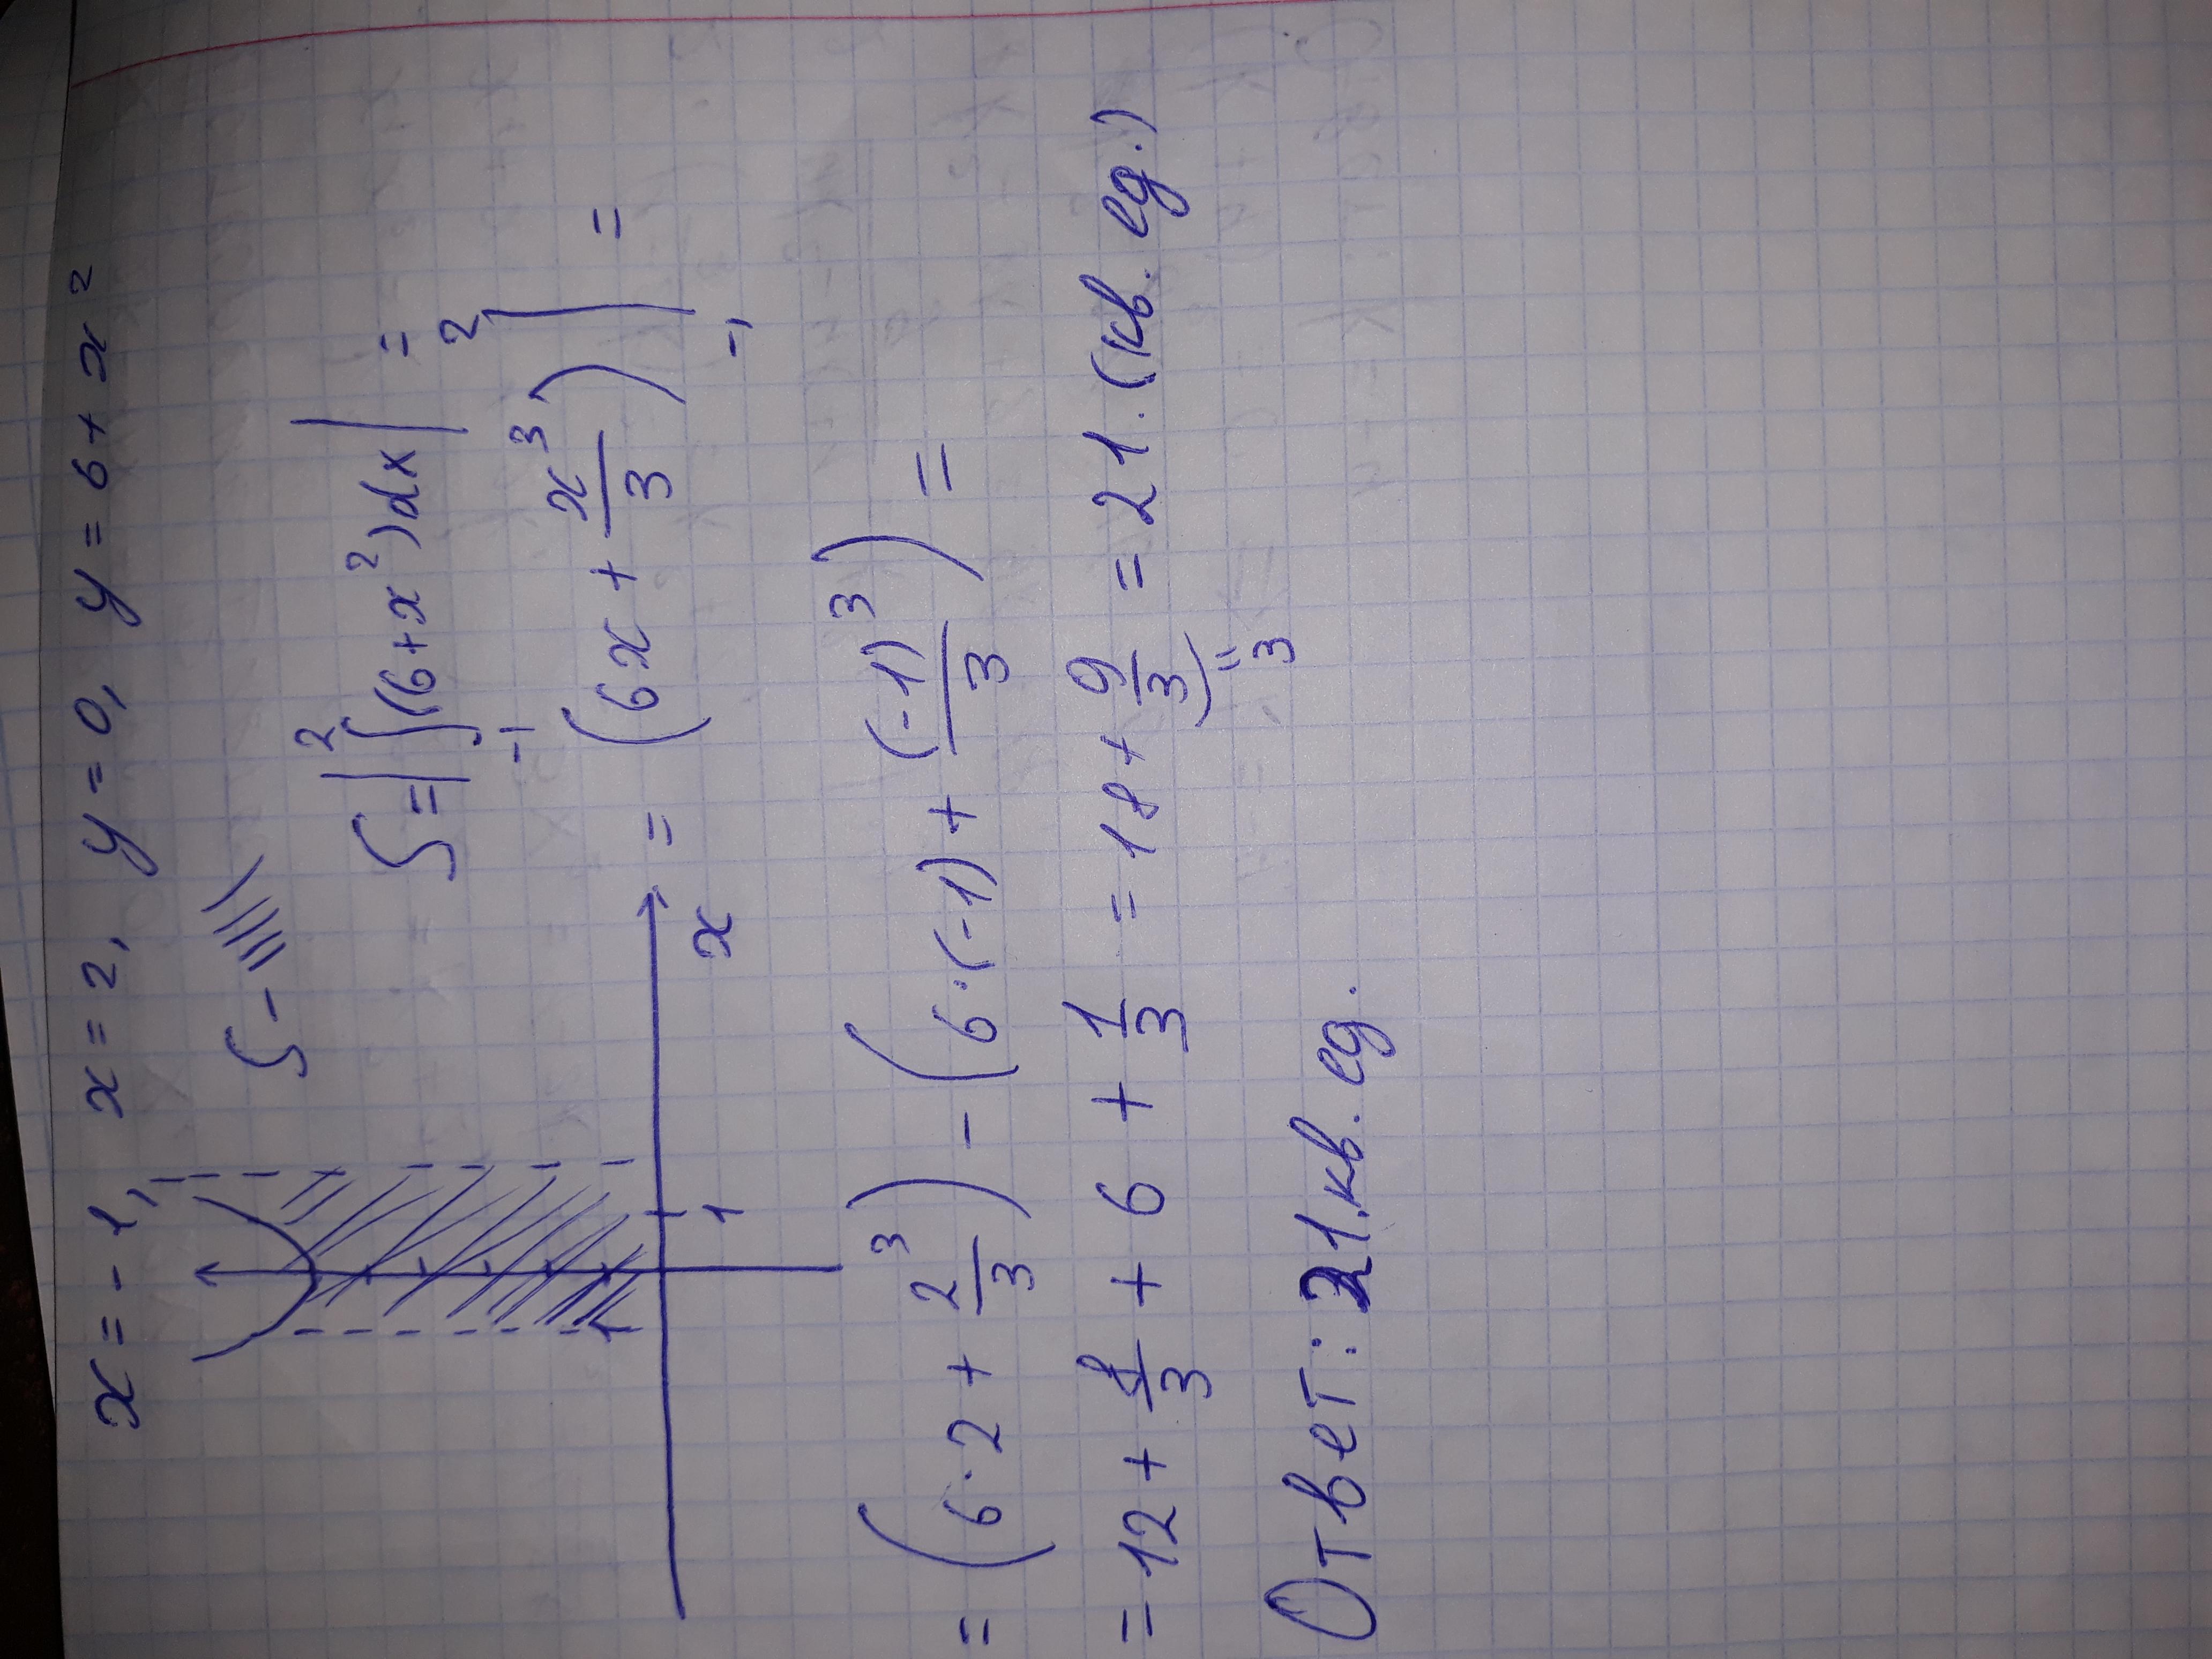 x = -1, x = 2, y = 0, y = 6 + x²
S - 
S = |∫₋₁² (6 + x²)dx| =
x = (6x + x³/3) |₋₁² =
1 1
= (6·2 + 2³/3) - (6·(-1) + (-1)³/3) =
= 12 + 8/3 + 6 + 1/3 = 18 + 9/3 = 21. (кв. ед.)
= 3
Ответ: 21. кв. ед.